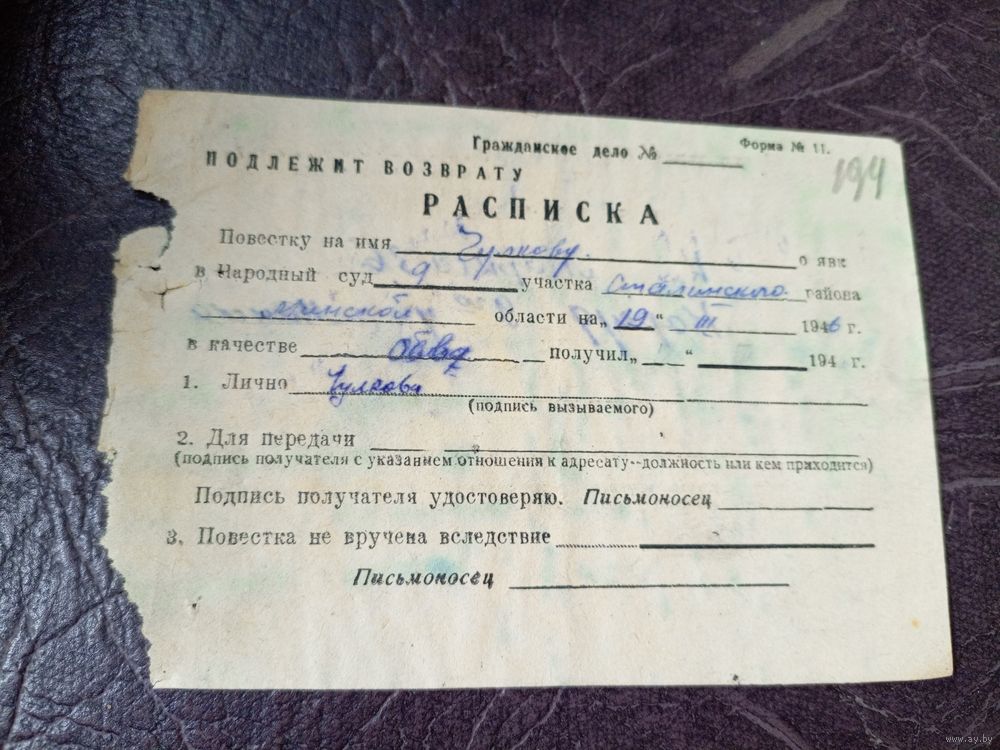 Гражданское дело № Форма № 11.
194
ПОДЛЕЖИТ ВОЗВРАТУ
РАСПИСКА
Повестку на имя Чулкову. о явк
в Народный суд 9 участка Сталинского района
Минской области на „19" III 1946 г.
в качестве обвд получил „ " 194 г.
1. Лично Чулкова
(подпись вызываемого)
2. Для передачи
(подпись получателя с указанием отношения к адресату--должность или кем приходится)
Подпись получателя удостоверяю. Письмоносец
3. Повестка не вручена вследствие
Письмоносец
www.ay.by